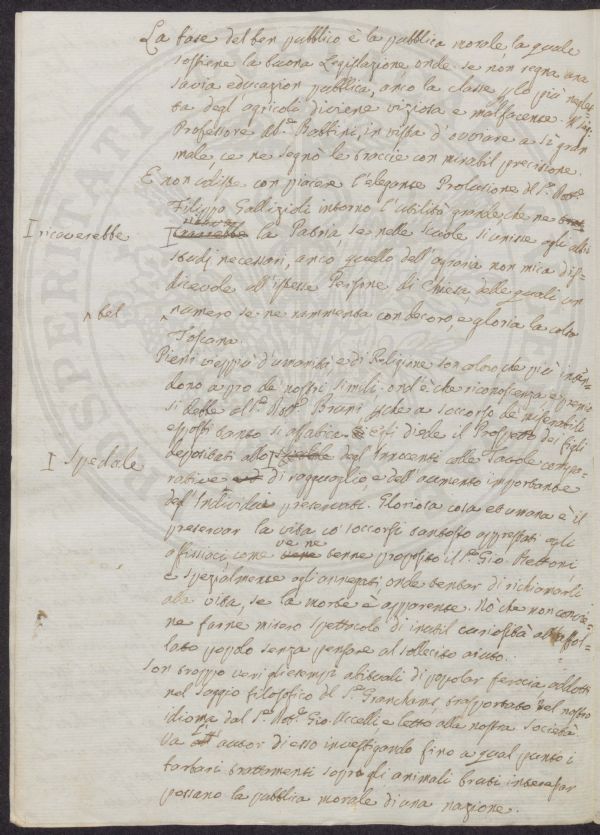 La base del ben pubblico è la pubblica morale, la quale
sostiene la buona Legislazione, onde se non regna una
savia educazion pubblica, anco la classe p lo più neglet-
ta degl' agricoli diviene viziosa e malfacente. Il Sig.r
Professore Ab.e Battini, in vista d'ovviare a sì gran
male, ce ne segnò le traccie con mirabil precisione.
E non udiste con piacere l'elegante Prolusione del S.r Dot.
Filippo Gallizioli intorno l'utilità grande, che ne
I ricaverebbe
I la Patria, se nelle scuole s'unisse agl' altri
studj necessarj, anco quello dell' agraria non mica dis-
dicevole all' istesse Persone di Chiesa, delle quali un
^ bel
^ numero se ne rammenta con decoro, e gloria la colta
Toscana.
Pieni veppiù d'umanità, e di Religione son coloro che più inten-
dono a pro de nostri simili. ond'è che riconoscenza e premio
si debbe al S.r Dot. Bruni, che a soccorso de' miserabili
esposti tanto si affatica. Ei diede il Prospetto dei figli
I Spedale
depositati allo degl' Innocenti colle Tavole compa-
rative di ragguaglio e dell' aumento importante
dell' Individui preservati. Gloriosa cosa ed umana è il
preservar la vita co' soccorsi tantosto apprestati agli
asfissiaci, come ve ne tenne proposito il S.r Gio. Bettoni,
e specialmente agli annegati, onde tentar di richiamarli
alla vita, se la morte è apparente. Nò che non convie-
ne farne misero spettacolo di inutil curiosità all' affol-
lato popolo senza pensare al sollecito aiuto.
Son troppo veri gli esempi abituali di popolar ferocia addotti
nel saggio filosofico del S.r Granchamp, trasportato nel nostro
idioma dal S.r Dot. Gio. Uccelli e letto alla nostra società
Va l' autor di esso investigando fino a qual punto i
barbari trattamenti sopra gli animali bruti interessar
possano la pubblica morale di una nazione.